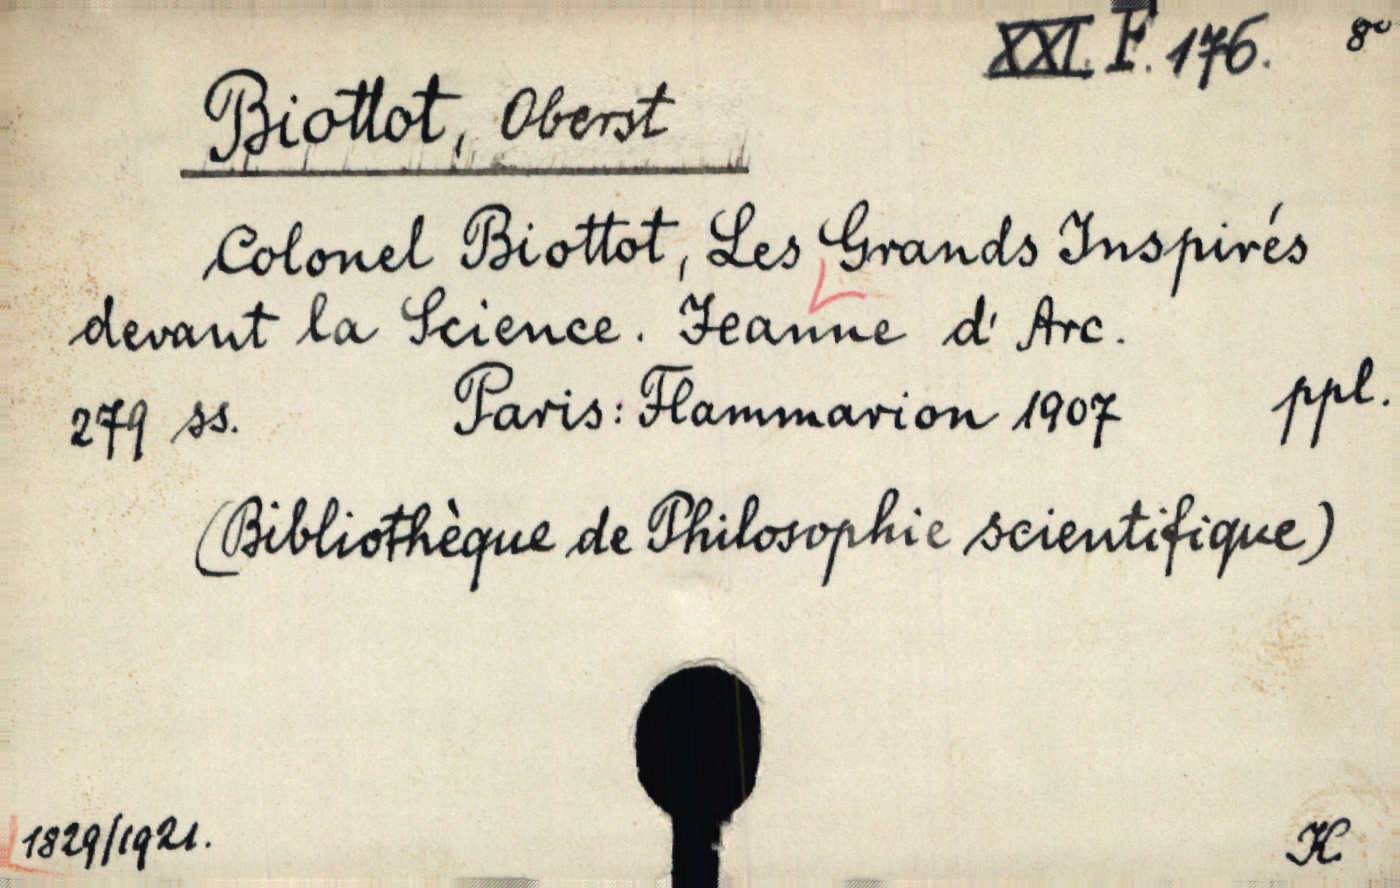 XXI. F. 176. 8°
Biottot, Oberst
Colonel Biottot, Les Grands Inspirés
devant la Science. Jeanne d'Arc.
279 ss. Paris: Flammarion 1907 ppl.
(Bibliothèque de Philosophie scientifique)
1829/1921. K